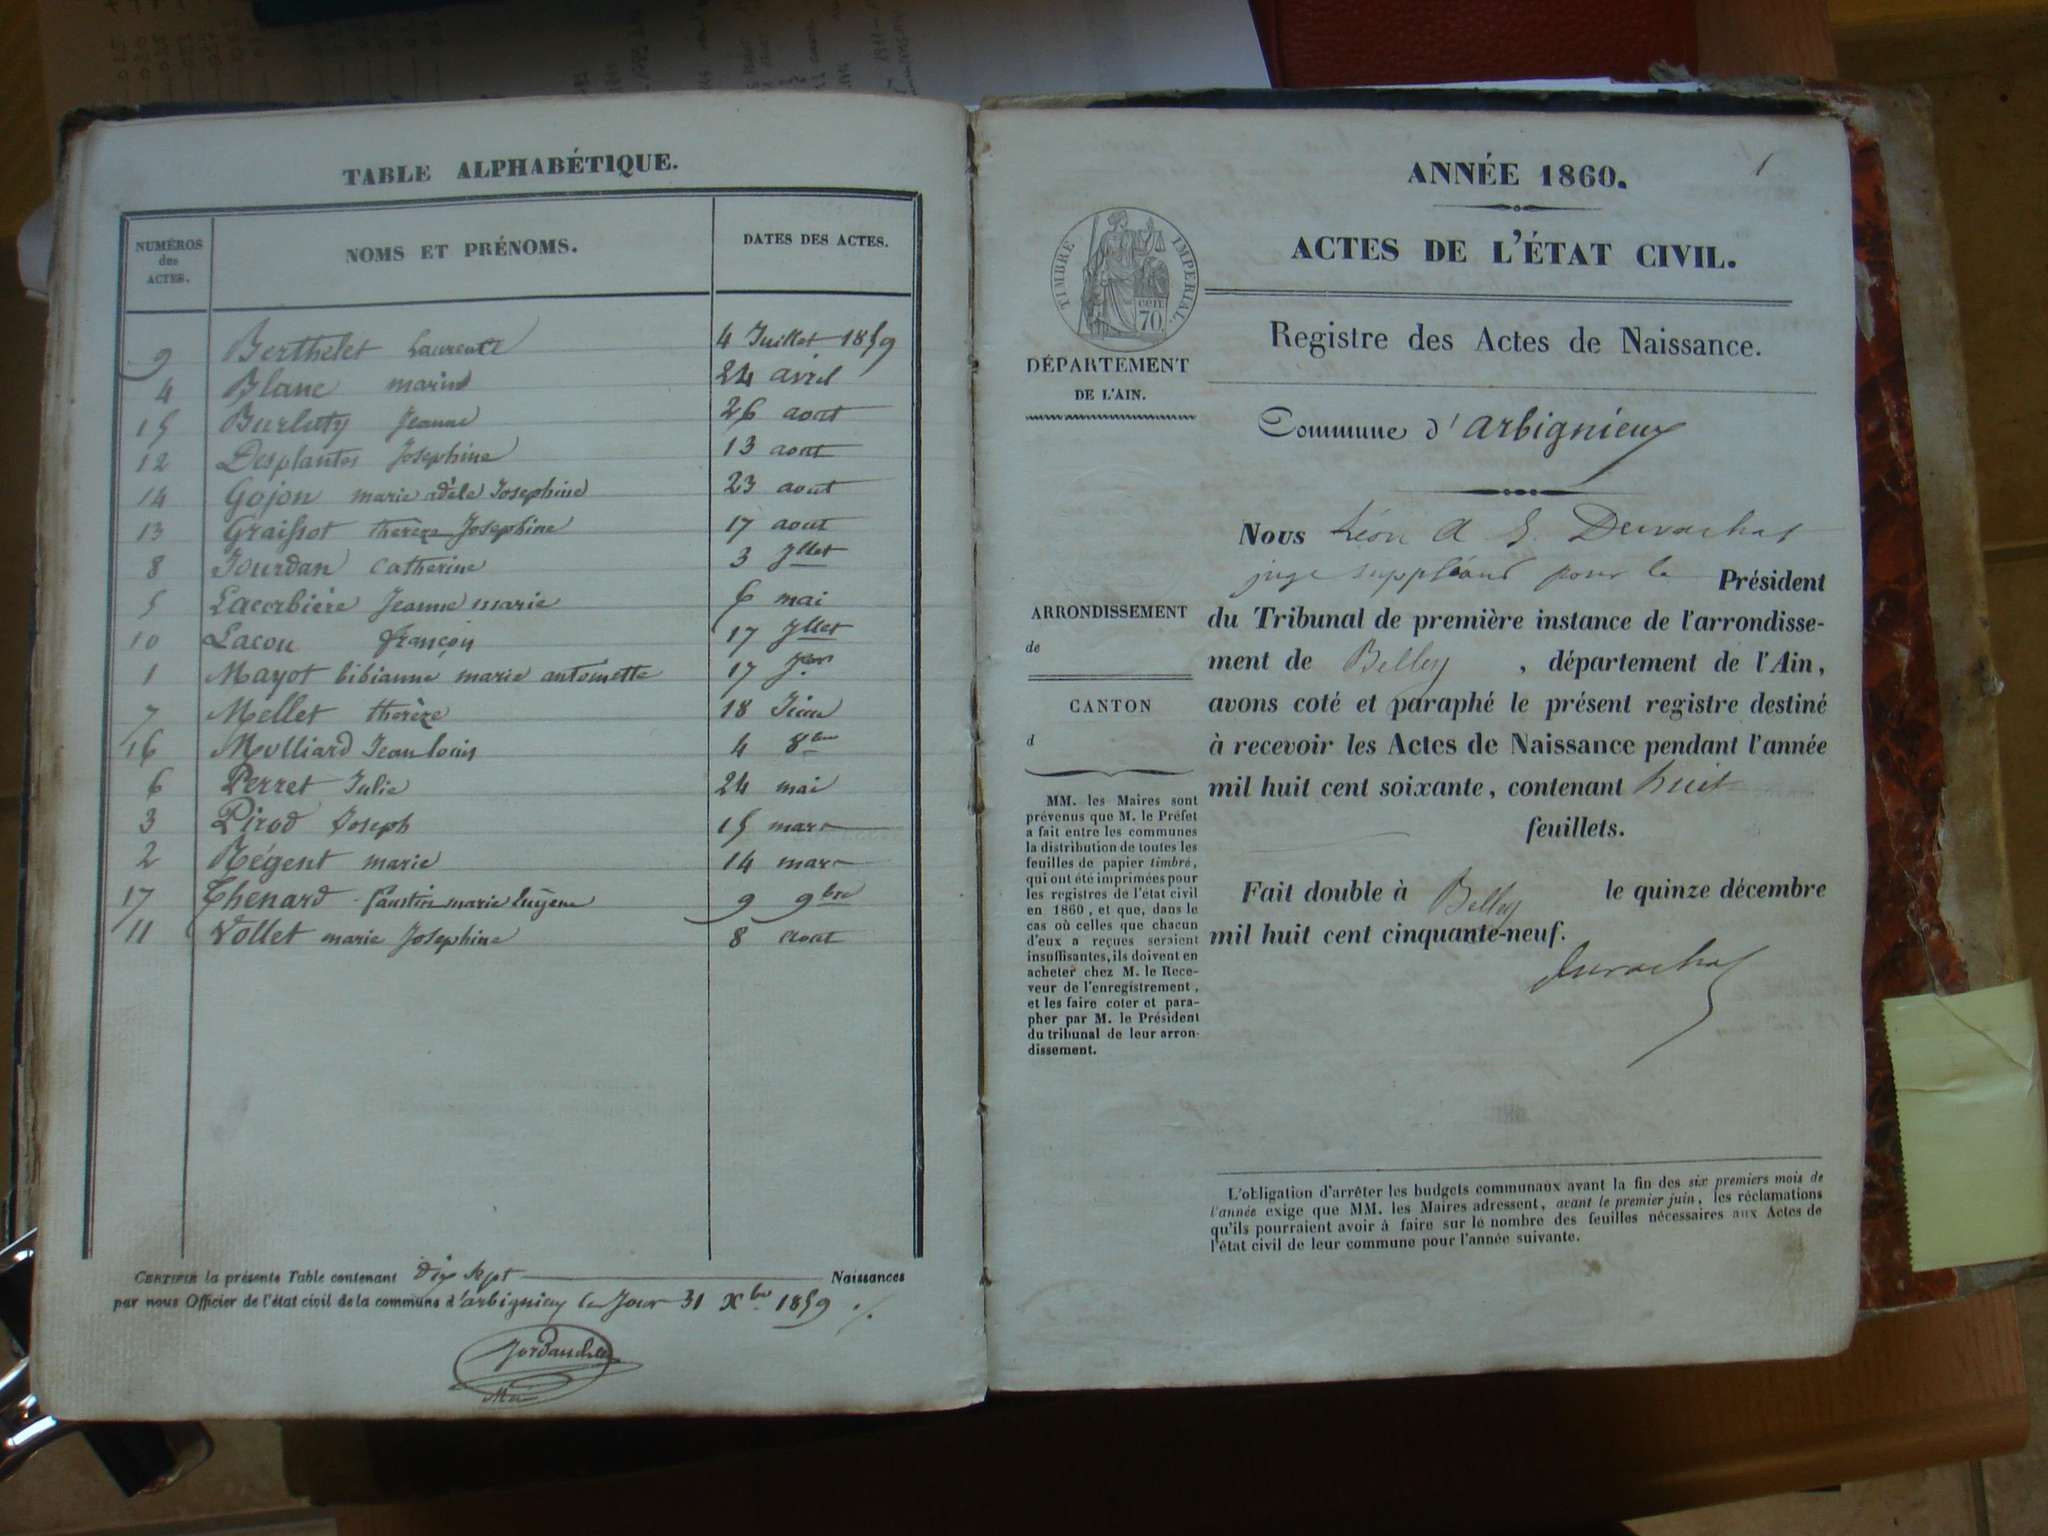 TABLE ALPHABÉTIQUE.
NUMÉROS des ACTES. NOMS ET PRÉNOMS. DATES DES ACTES.
9 Berthelet Laurence 4 Juillet 1859
4 Blanc marie 24 avril
15 Burluty Jeanne 26 aout
12 Desplantes Josephine 13 aout
14 Gojon marie adèle Josephine 23 aout
13 Graissot therèze Josephine 17 aout
8 Jourdan Catherine 3 Jllet
5 Lacorbière Jeanne marie 6 mai
10 Lacou françois 17 Jllet
1 Mayot bibianne marie antoinette 17 Jer
7 Mellet therèze 18 Juin
16 Molliard Jean louis 4 8bre
6 Perret Julie 24 mai
3 Pirod Joseph 15 mars
2 Régent marie 14 mars
17 Thenard faustin marie Eugène 9 9bre
11 Vollet marie Josephine 8 aout
CERTIFIÉ la présente Table contenant Dix sept Naissances
par nous Officier de l'état civil de la commune d'arbignieu ce Jour 31 Xbre 1859 ./.
1
ANNÉE 1860.
ACTES DE L'ÉTAT CIVIL.
TIMBRE IMPERIAL.
cen. 70
DÉPARTEMENT
DE L'AIN.
Registre des Actes de Naissance.
Commune d'arbignieux
Nous Léon A E. Durochat
juge suppléant pour le Président
du Tribunal de première instance de l'arrondisse-
ment de Belley , département de l'Ain,
avons coté et paraphé le présent registre destiné
à recevoir les Actes de Naissance pendant l'année
mil huit cent soixante, contenant huit
feuillets.
Fait double à Belley le quinze décembre
mil huit cent cinquante-neuf.
Durochat
ARRONDISSEMENT
de
CANTON
d
MM. les Maires sont
prévenus que M. le Préfet
a fait entre les communes
la distribution de toutes les
feuilles de papier timbré,
qui ont été imprimées pour
les registres de l'état civil
en 1860, et que, dans le
cas où celles que chacun
d'eux a reçues seraient
insuffisantes, ils doivent en
acheter chez M. le Rece-
veur de l'enregistrement,
et les faire coter et para-
pher par M. le Président
du tribunal de leur arron-
dissement.
L'obligation d'arrêter les budgets communaux avant la fin des six premiers mois de
l'année exige que MM. les Maires adressent, avant le premier juin, les réclamations
qu'ils pourraient avoir à faire sur le nombre des feuilles nécessaires aux Actes de
l'état civil de leur commune pour l'année suivante.